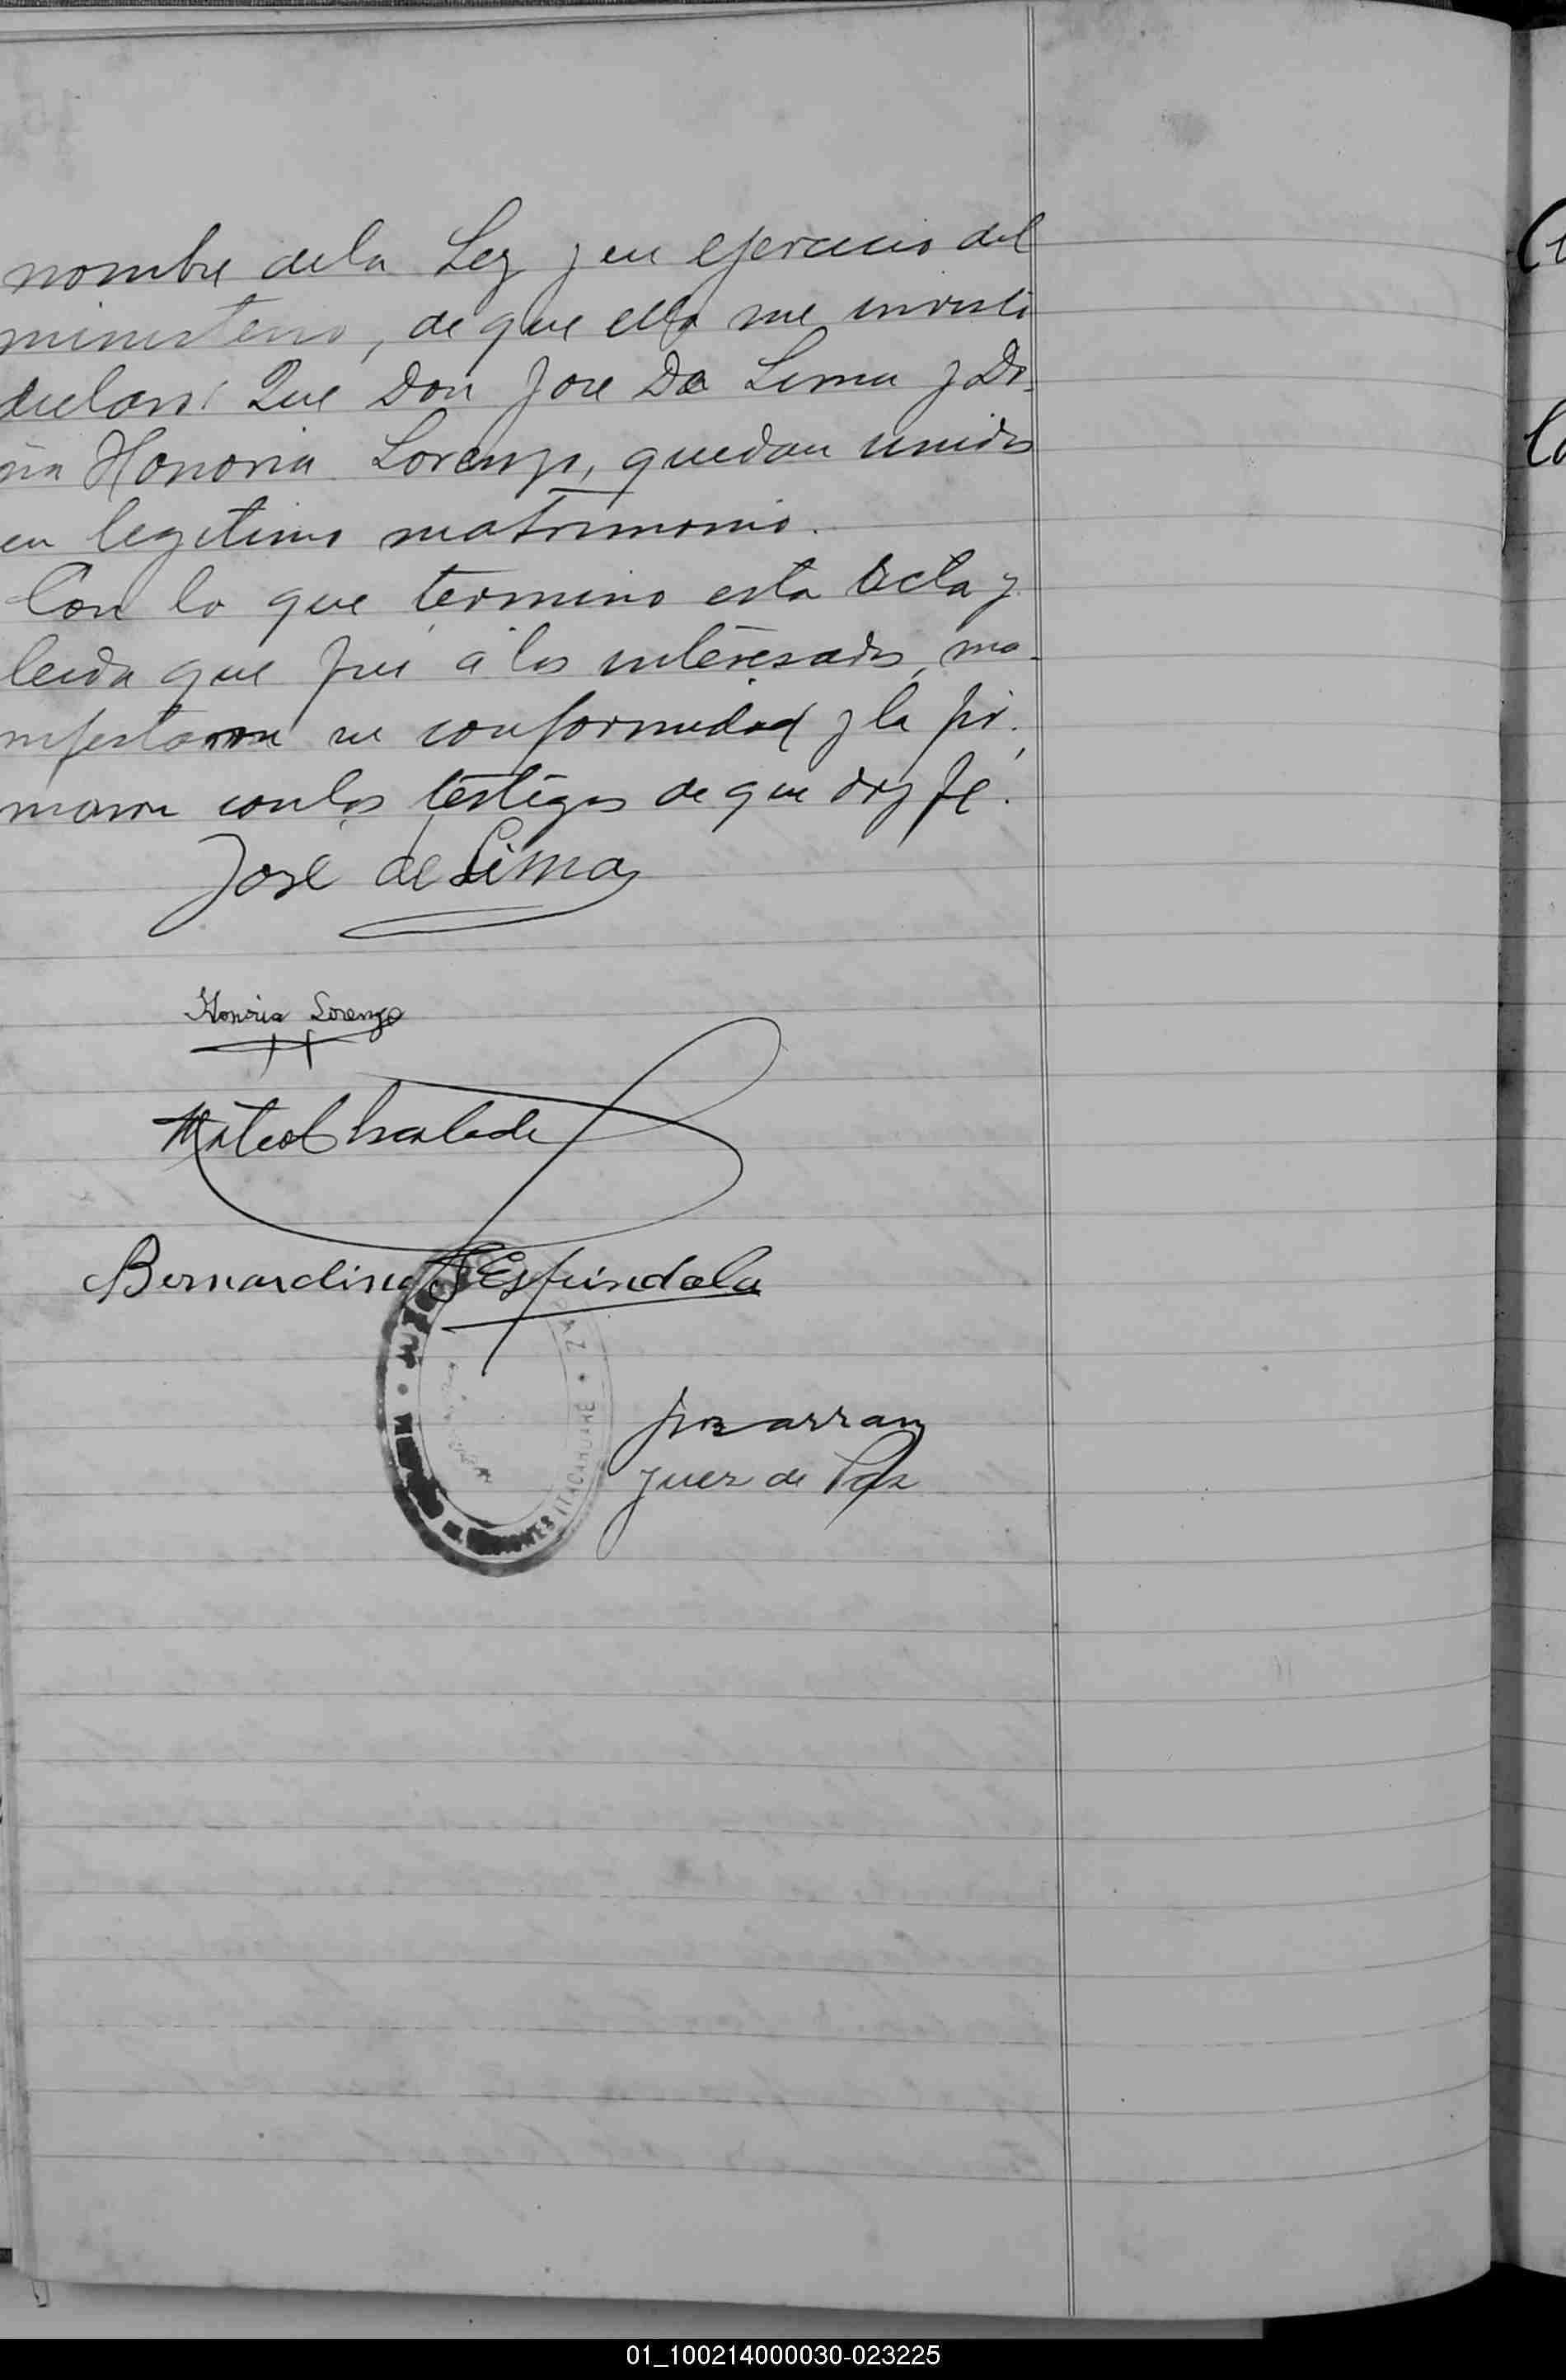 nombre dela Ley y en ejercicio del
ministerio, de que ella me invisti
declaro: Que Don Jose Da Lima y Do-
ña Honoria Lorenzo, quedan unidos
en legitimo matrimonio.
Con lo que termino esta acta y
leida que fué á los interesados, ma-
nifestaron su conformidad y la fir-
maron con los testigos de que doy fé.
José de Lima
Honoria Lorenzo
Mateo Escalada
Bernardino Espindola
Juez de Paz
ITACARUARÉ
01_100214000030-023225